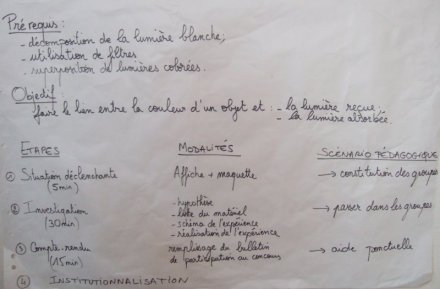 Prérequis :
- décomposition de la lumière blanche;
- utilisation de filtres
- superposition de lumières colorées.
Objectif
faire le lien entre la couleur d'un objet et : - la lumière reçue;
- la lumière absorbée.
ETAPES MODALITÉS SCENARIO PÉDAGOGIQUE
① Situation déclenchante Affiche + maquette → constitution des groupes
(5min)
② Investigation - hypothèse → passer dans les groupes
(30min) - liste du matériel
- schéma de l'expérience
- réalisation de l'expérience
③ Compte-rendu remplissage du bulletin → aide ponctuelle
(15min) de participation au concours
④ INSTITUTIONNALISATION